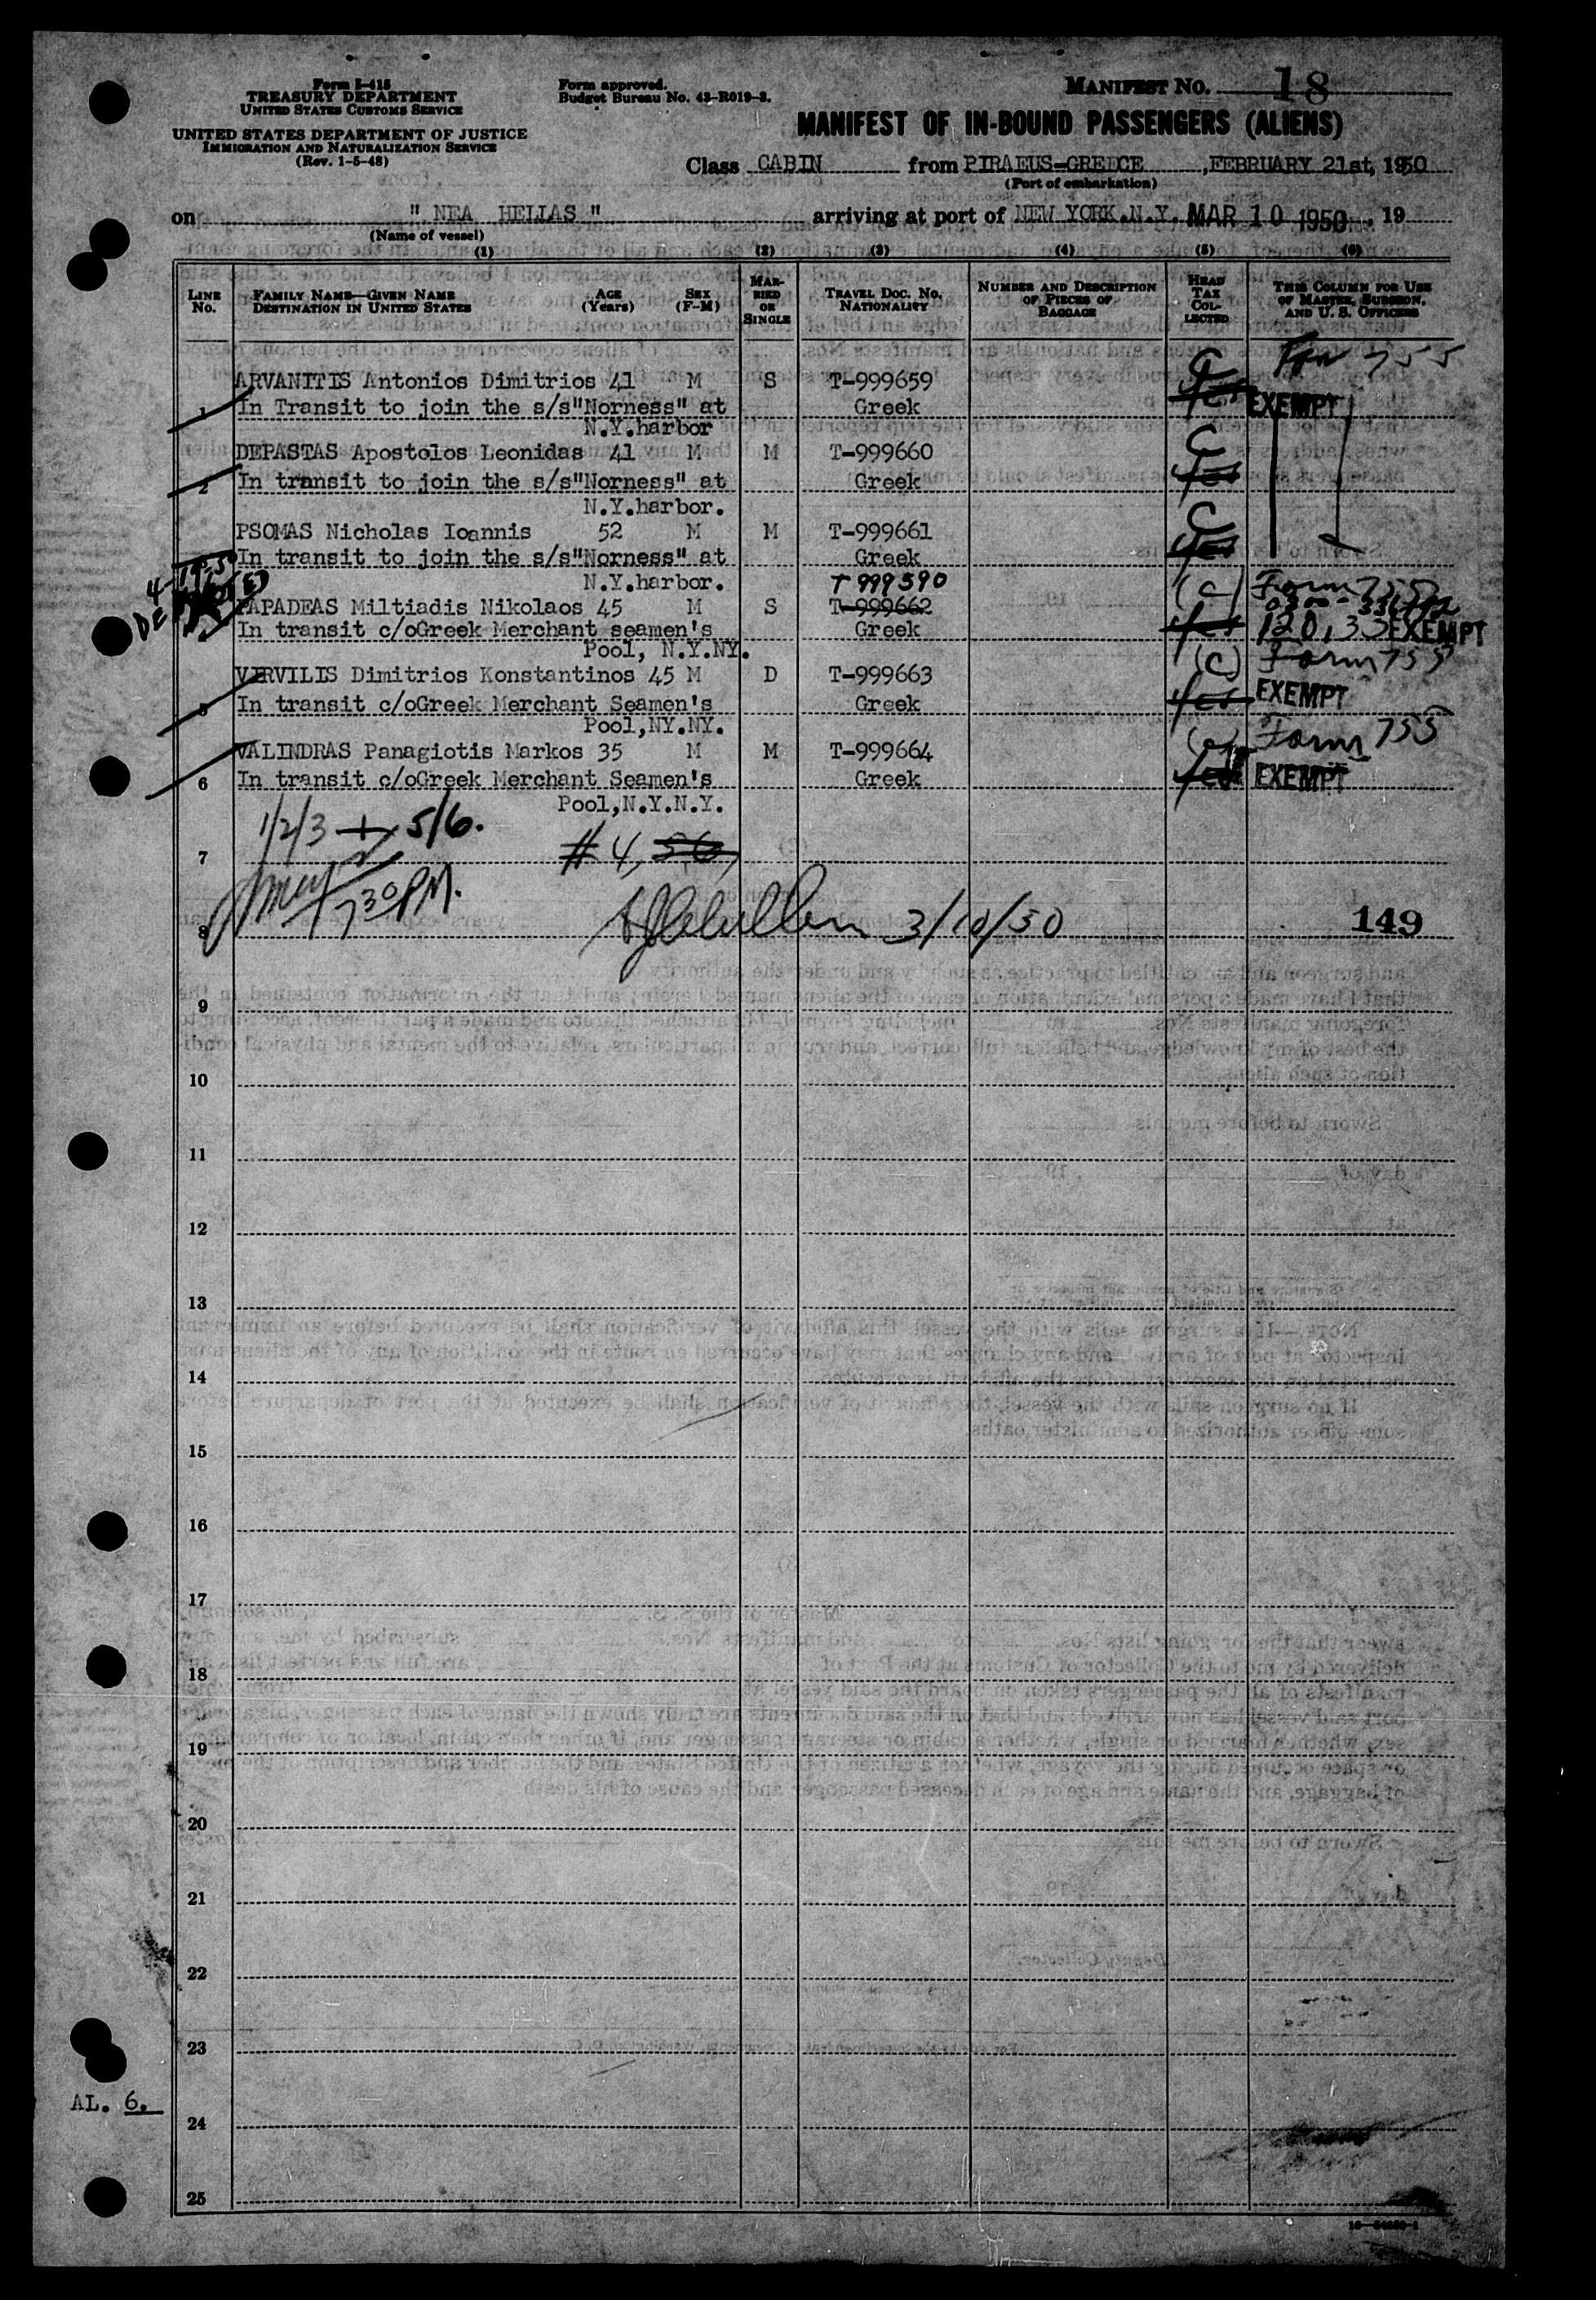 Form I-415
TREASURY DEPARTMENT
UNITED STATES CUSTOMS SERVICE
UNITED STATES DEPARTMENT OF JUSTICE
IMMIGRATION AND NATURALIZATION SERVICE
(Rev. 1-5-48)
Form approved.
Budget Bureau No. 43-R019-3.
MANIFEST NO. 18
MANIFEST OF IN-BOUND PASSENGERS (ALIENS)
Class CABIN from PIRAEUS-GREECE, FEBRUARY 21st, 1950
(Port of embarkation)
on " NEA HELLAS " arriving at port of NEW YORK.N.Y. MAR 10 1950, 19
(Name of vessel)
(1) (2) (3) (4) (5) (6)
LINE No. FAMILY NAME—GIVEN NAME DESTINATION IN UNITED STATES AGE (Years) SEX (F-M) MARRIED OR SINGLE TRAVEL DOC. NO. NATIONALITY NUMBER AND DESCRIPTION OF PIECES OF BAGGAGE HEAD TAX COLLECTED THIS COLUMN FOR USE OF MASTER, SURGEON, AND U. S. OFFICERS
ARVANITIS Antonios Dimitrios 41 M S T-999659 C 755
1 In Transit to join the s/s"Norness" at Greek yes EXEMPT
N.Y.harbor
DEPASTAS Apostolos Leonidas 41 M M T-999660 C
2 In transit to join the s/s"Norness" at Greek yes
N.Y.harbor.
PSOMAS Nicholas Ioannis 52 M M T-999661 C
In transit to join the s/s"Norness" at Greek yes
N.Y.harbor. T 999590
PAPADEAS Miltiadis Nikolaos 45 M S T-999662 (c) Form 755
In transit c/oGreek Merchant seamen's Greek yes EXEMPT
Pool, N.Y.NY.
VIRVILIS Dimitrios Konstantinos 45 M D T-999663 (c) Form 755
5 In transit c/oGreek Merchant Seamen's Greek yes EXEMPT
Pool,NY.NY.
VALINDRAS Panagiotis Markos 35 M M T-999664 (c) Form 755
6 In transit c/oGreek Merchant Seamen's Greek yes EXEMPT
Pool,N.Y.N.Y.
1/2/3 + 5/6.
7 # 4, 56,
7 30 PM.
8 3/10/50 149
9
10
11
12
13
14
15
16
17
18
19
20
21
22
23
AL. 6.
24
25